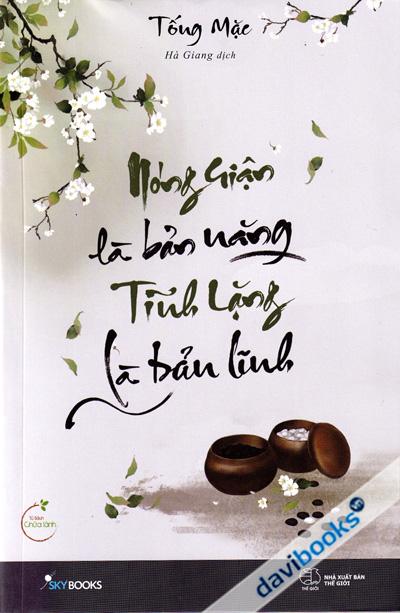 Tống Mặc
Hà Giang dịch
Nóng Giận
là bản năng
Tĩnh Lặng
là bản lĩnh
Tủ Sách
Chữa lành
SKYBOOKS
THẾ GIỚI
NHÀ XUẤT BẢN
THẾ GIỚI
davibooks.vn